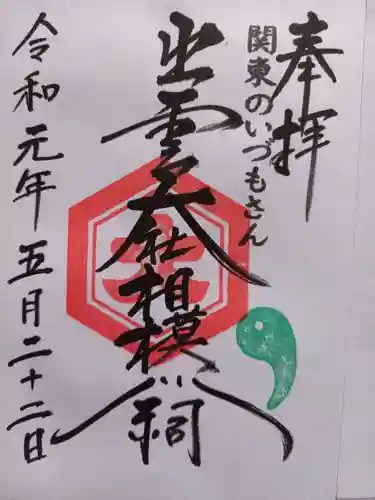 奉拝
関東のいづもさん
出雲大社相模分祠
令和元年五月二十二日